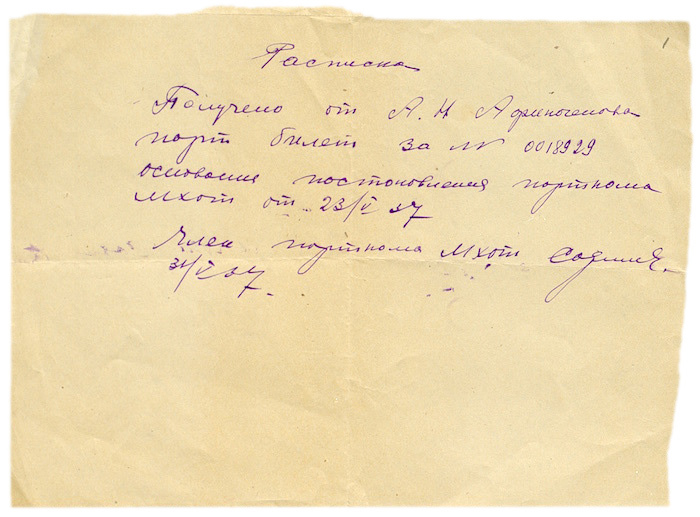 1
Расписка
Получено от А. Н Афиногенова
парт билет за № 0018929
основания постановления парткома
Мхат от 23/V 37
Член парткома Мхат
31/V 37.